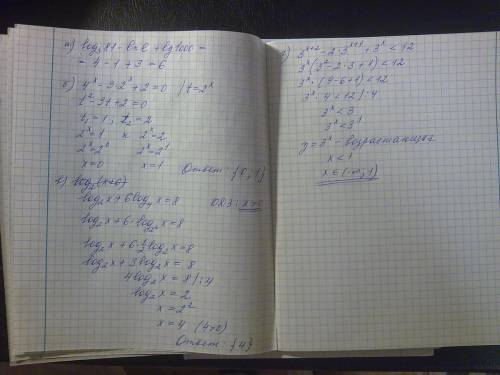 а) log₃81 - ln e + lg1000 =
= 4 - 1 + 3 = 6
б) 4ˣ - 3·2ˣ + 2 = 0 / t = 2ˣ
t² - 3t + 2 = 0
t₁ = 1; t₂ = 2
2ˣ = 1 и 2ˣ = 2
2ˣ = 2⁰ 2ˣ = 2¹
x = 0 x = 1
Ответ: {0; 1}
в)
log₂x + 6log₄x = 8 ОДЗ: x > 0
log₂x + 6·log₂²x = 8
log₂x + 6·½log₂x = 8
log₂x + 3log₂x = 8
4log₂x = 8 /:4
log₂x = 2
x = 2²
x = 4 (4>0)
Ответ: {4}
г) 3ˣ⁺² - 2·3ˣ⁺¹ + 3ˣ < 12
3ˣ(3² - 2·3 + 1) < 12
3ˣ·(9-6+1) < 12
3ˣ·4 < 12 /:4
3ˣ < 3
3ˣ < 3¹
y = 3ˣ - возрастающая
x < 1
x ∈ (-∞; 1)